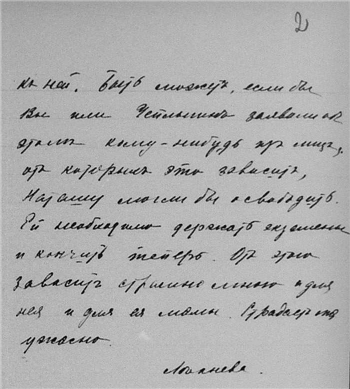 2
къ ней. Быть можетъ, если бы
Вы или заявили объ
этомъ кому-нибудь изъ лицъ,
отъ которыхъ это зависитъ,
Наташу могли бы освободить.
Ей необходимо держать экзамены
и кончить теперь. Отъ этого
зависитъ страшно много и для
нея и для ея мамы. Страдаетъ она
ужасно.